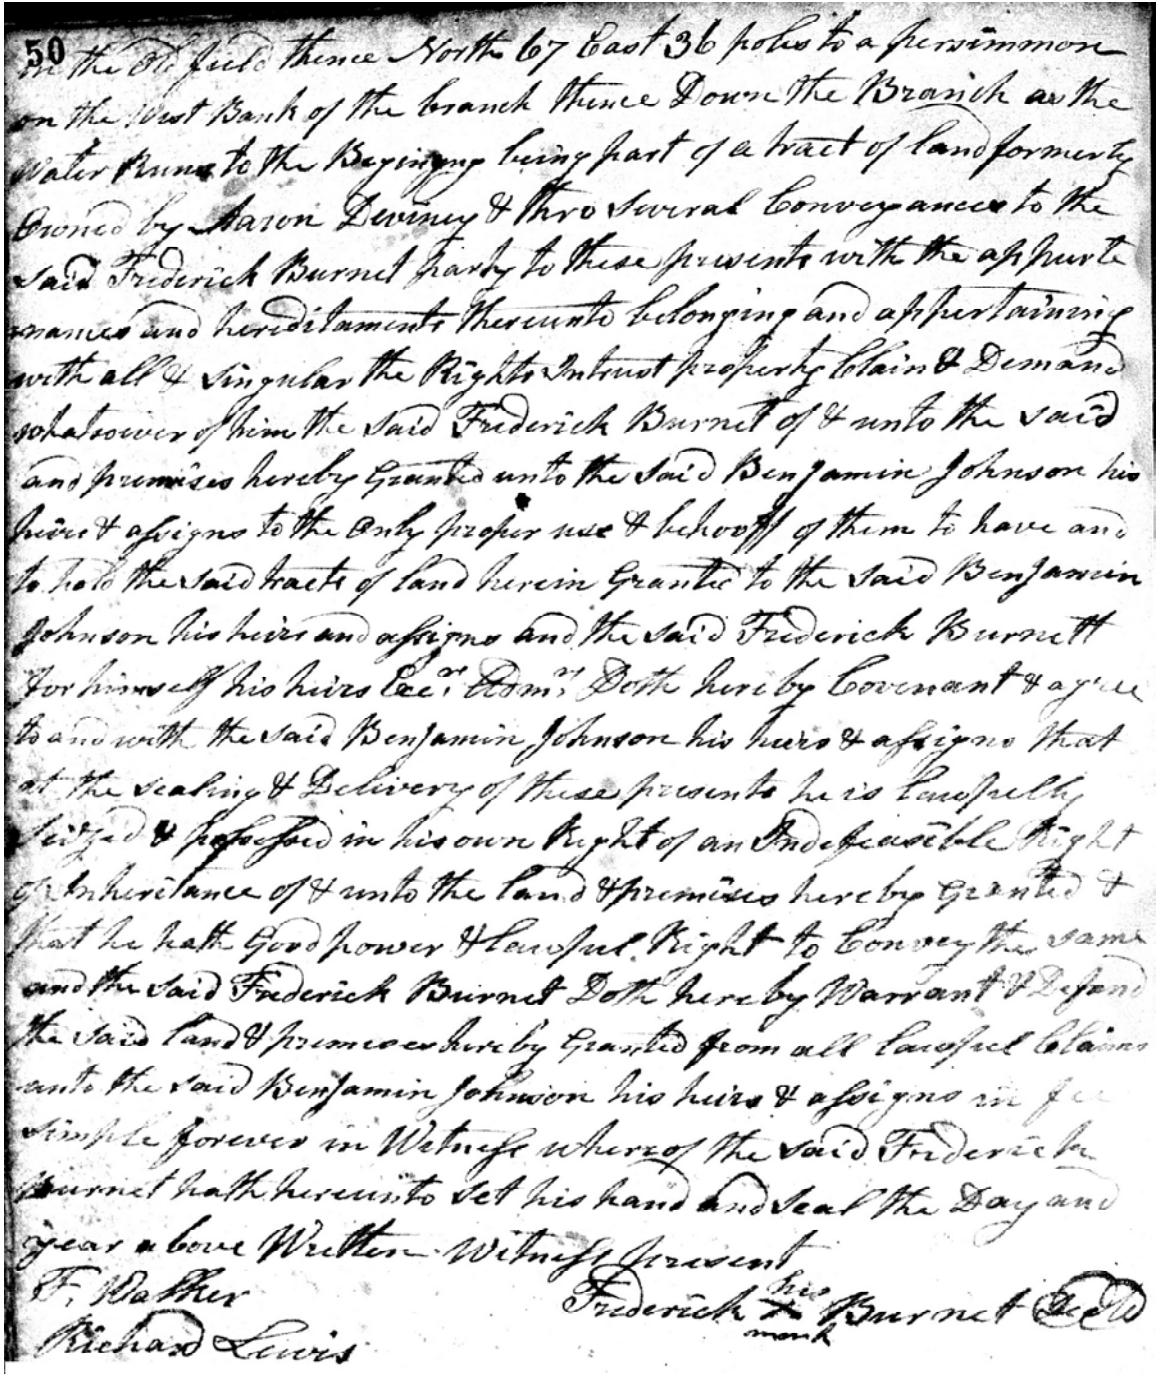 50
in the Old field thence North 67 East 36 poles to a persimmon
on the West Bank of the branch thence Down the Branch as the
Water Runs to the Begining being part of a tract of land formerly
Owned by Aaron Deviney & thro several Conveyances to the
said Frederick Burnet party to these presents with the appurte
nances and hereditaments thereunto belonging and appertaining
with all & singular the Rights Intrust property Claim & Demand
whatsoever of him the said Frederick Burnet of & unto the said
and premises hereby Granted unto the said Benjamin Johnson his
heirs & assigns to the Only proper use & behooff of them to have and
to hold the said tracts of land herein Granted to the said Benjamin
Johnson his heirs and assigns and the said Frederick Burnett
for himself his heirs Exe.rs Adm.rs Doth hereby Covenant & agree
to and with the said Benjamin Johnson his heirs & assigns that
at the sealing & Delivery of these presents he is lawfully
seized & possessed in his own Right of an Indefeasible Right
of Inheritance of & unto the land & premises hereby Granted &
that he hath Good power & lawful Right to Convey the same
and the said Frederick Burnet Doth hereby Warrant & Defand
the said land & premises hereby Granted from all lawful Claims
unto the said Benjamin Johnson his heirs & assigns in fee
simple forever in Witness whereof the said Frederick
Burnet hath hereunto set his hand and seal the Day and
year above Written Witness present
F. Walker
Frederick his X mark Burnet Seal
Richard Lewis